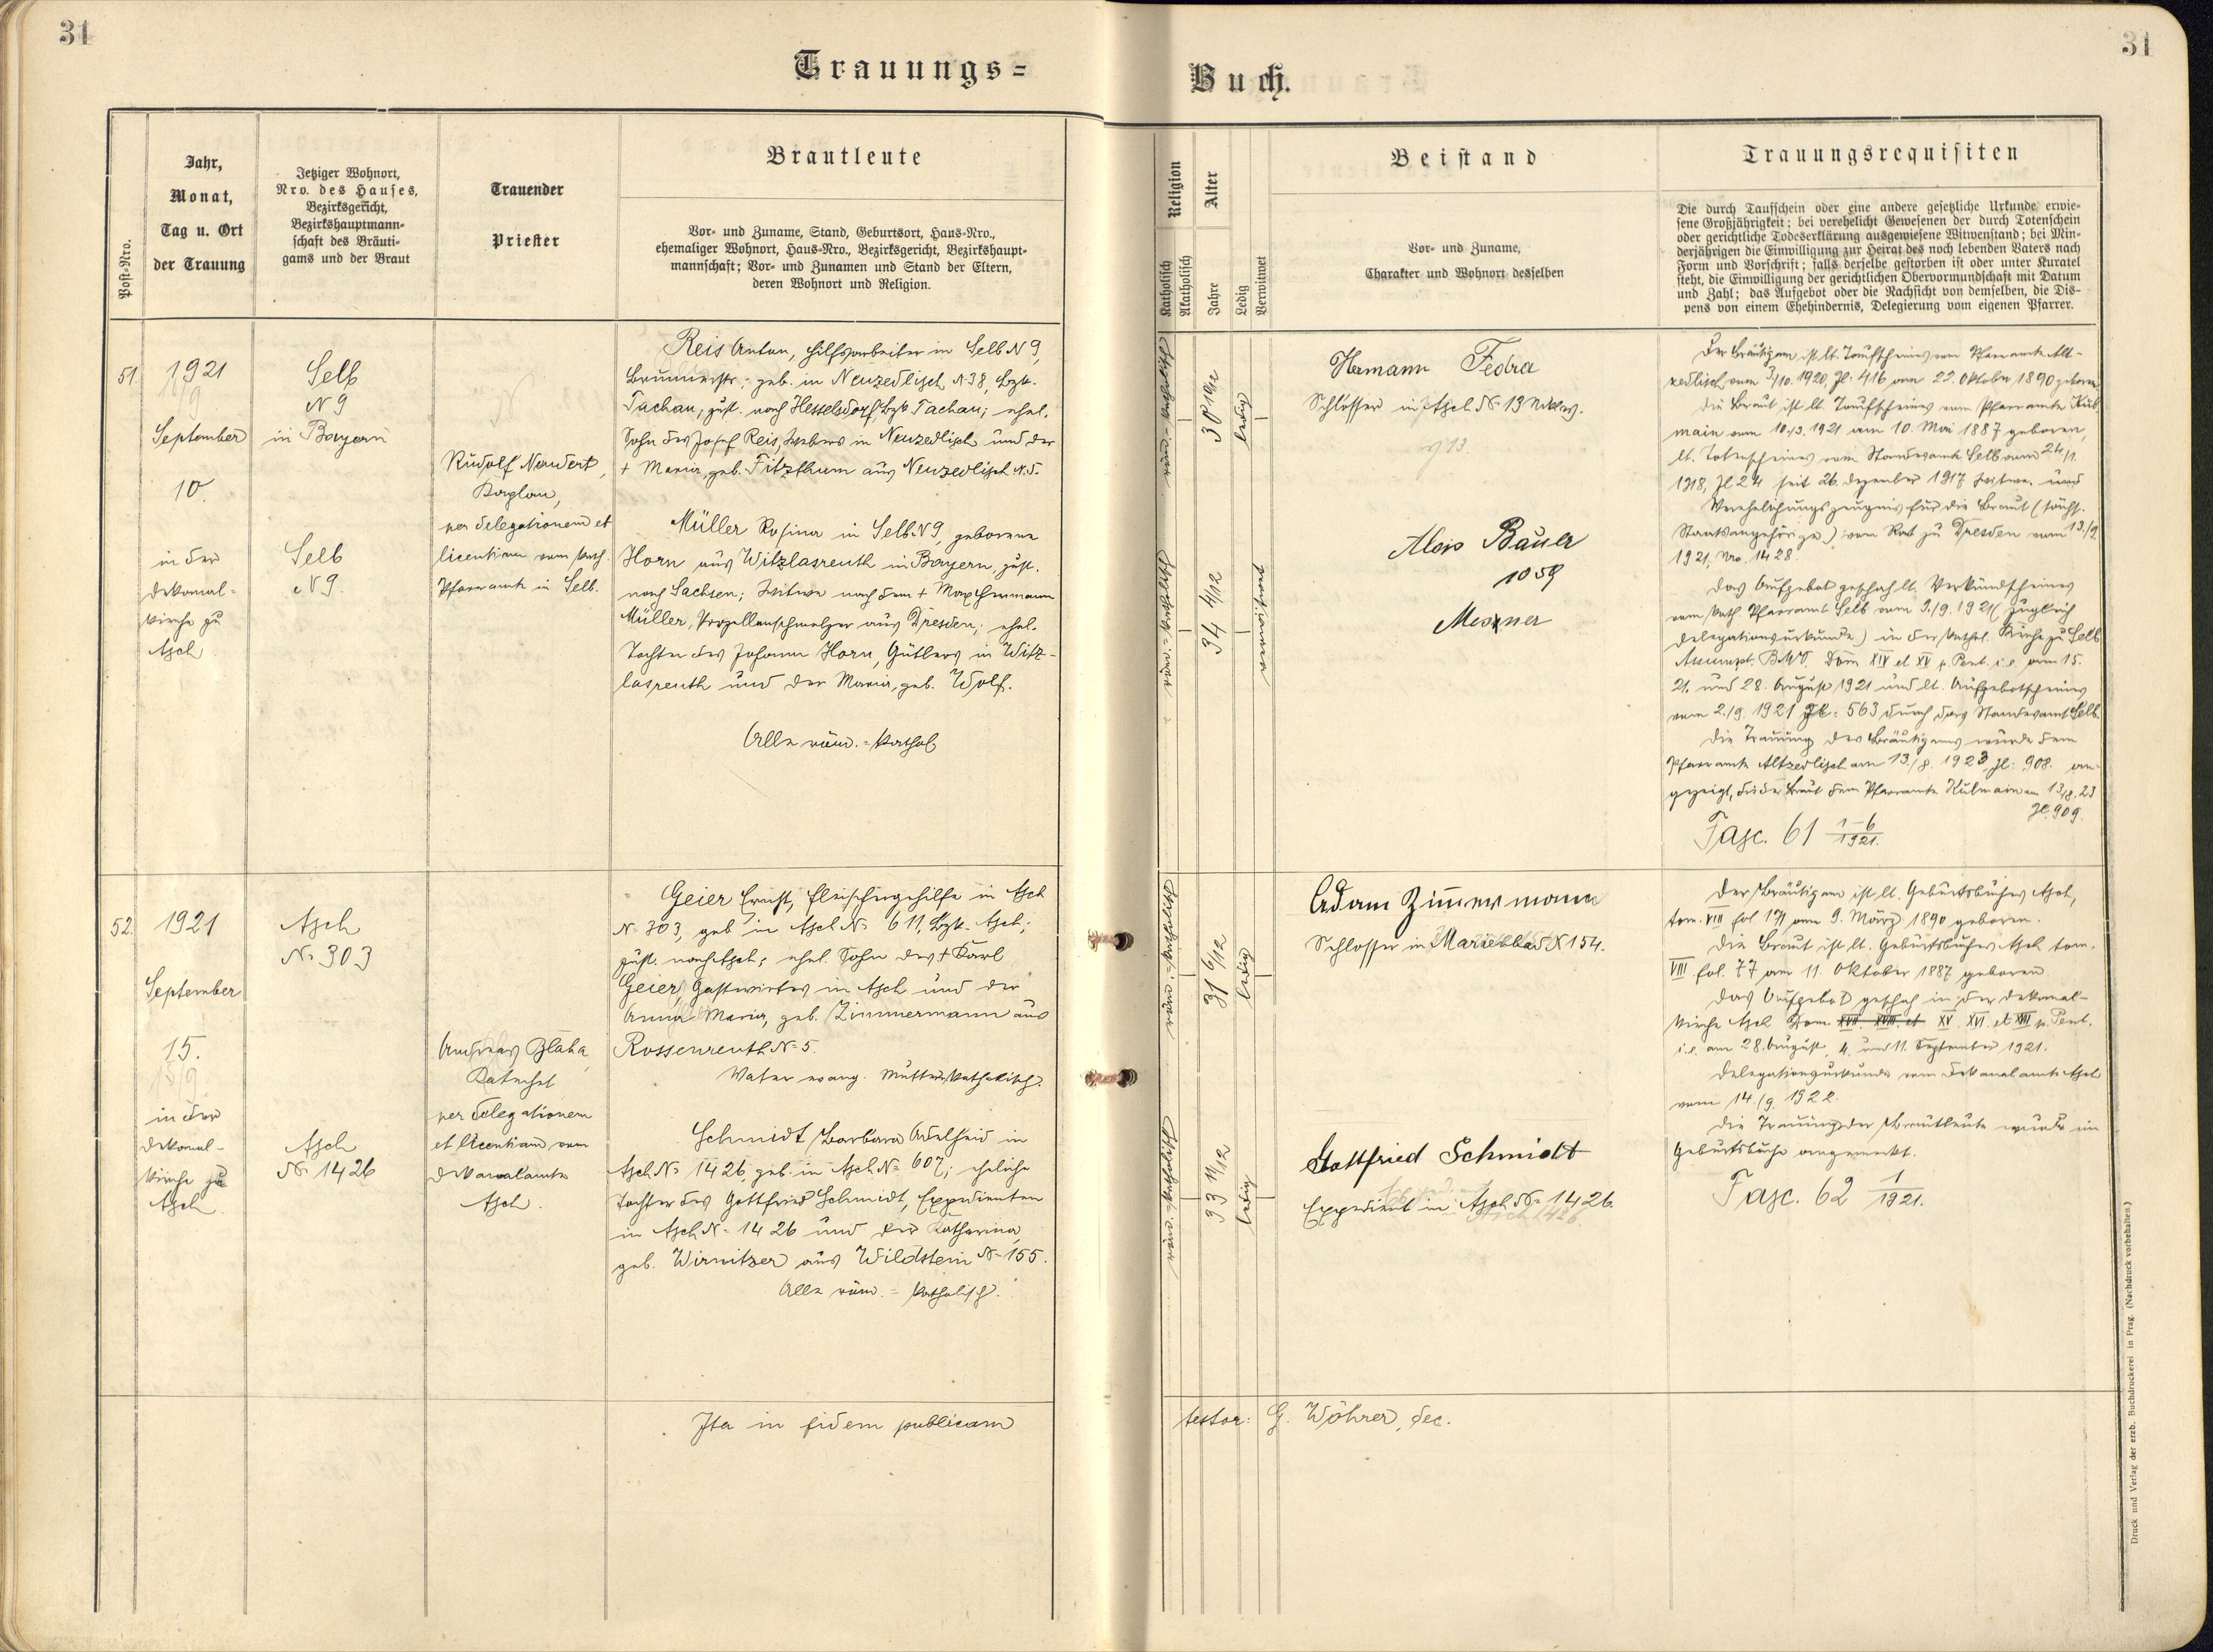 31
31
Trauungs=
Buch.
Post=Nro.
Jahr,
Monat,
Tag u. Ort
der Trauung
Jetziger Wohnort,
Nro. des Hauses,
Bezirksgericht,
Bezirkshauptmann=
schaft des Bräuti=
gams und der Braut
Trauender
Priester
Brautleute
Vor= und Zuname, Stand, Geburtsort, Haus=Nro.,
ehemaliger Wohnort, Haus=Nro., Bezirksgericht, Bezirkshaupt=
mannschaft; Vor= und Zunamen und Stand der Eltern,
deren Wohnort und Religion.
Religion
Katholisch
Akatholisch
Alter
Jahre
Ledig
Verwitwet
Beistand
Vor= und Zuname,
Charakter und Wohnort desselben
Trauungsrequisiten
Die durch Taufschein oder eine andere gesetzliche Urkunde erwie=
sene Großjährigkeit; bei verehelicht Gewesenen der durch Totenschein
oder gerichtliche Todeserklärung ausgewiesene Witwenstand; bei Min=
derjährigen die Einwilligung zur Heirat des noch lebenden Vaters nach
Form und Vorschrift; falls derselbe gestorben ist oder unter Kuratel
steht, die Einwilligung der gerichtlichen Obervormundschaft mit Datum
und Zahl; das Aufgebot oder die Nachsicht von demselben, die Dis=
pens von einem Ehehindernis, Delegierung vom eigenen Pfarrer.
51.
1921
September
10.
in der
Dekanal=
kirche zu
Asch
Selb
N 9
in Bayern
Selb
N 9.
Rudolf Neudert,
Kaplan,
per delegationem et
licentiam vom kath.
Pfarramte in Selb.
Reis Anton, Hilfsarbeiter in Selb N 9,
geb. in Neuzedlisch N 38, Bzk.
Tachau, zust. nach Hesselsdorf, Bzk Tachau; ehel.
Sohn des Josef Reis, Webers in Neuzedlisch und der
+ Maria, geb. Fitzthum aus Neuzedlisch N. 5.
Müller Rosina in Selb N 9, geborene
Horn aus Witzlasreuth in Bayern, zust.
nach Sachsen; Witwe nach dem + Max Hermann
Müller, Porzellanschmelzer aus Dresden; ehel.
Tochter des Johann Horn, Gütlers in Witz-
lasreuth und der Maria, geb. Wolf.
Alle röm.=kathol
30 10/12
ledig
34 4/12
verwitwet
Hermann Fedra
Schlosser in Asch N 13
Alois Bauer
1059
Mesner
Der Bräutigam ist lt. Taufscheines vom Pfarramte Alt-
zedlisch vom 3/10. 1920, Zl: 416 am 22. Oktober 1890 geboren.
Die Braut ist lt. Taufscheines vom Pfarramte Kul
main vom 10./3. 1921 am 10. Mai 1887 geboren,
lt. Totenscheines vom Standesamte Selb vom 24/1.
1918, Zl 24 seit 26. Dezember 1917 Witwe. und
Verehelichungszeugnis für die Braut (sächs.
Staatsangehörige) vom Rat zu Dresden vom 13./9.
1921, Nro. 1428.
Das Aufgebot geschah lt. Verkündscheines
vom kath. Pfarramt Selb vom 9./9. 1921 (zugleich
Delegationsurkunde) in der kathol. Kirche zu Selb
Assumpt. B.M.V. Dom XIV et XV p. Pent. i. e. am 15.
21. und 28. August 1921 und lt. Aufgebotscheines
vom 2./9. 1921 Zl: 563 durch das Standesamt Selb.
Die Trauung des Bräutigams wurde dem
Pfarramte Altzedlisch am 13./8. 1923, Zl: 908. an-
gezeigt, die der Braut dem Pfarramte Kulmain am 13/8. 23
Zl. 909.
Fasc. 61 1-6/1921.
52.
1921
September
15.
in der
Dekanal-
kirche zu
Asch.
Asch
N= 303
Asch
N= 1426
Andreas Blaha,
Katechet
per delegationem
et licentiam vom
Dekanalamte
Asch.
Geier Ernst, Fleischergehilfe in Asch
N= 303, geb in Asch N= 611, Bzk. Asch;
zust. nach Asch; ehel. Sohn des + Karl
Geier, Gastwirtes in Asch und der
Anna Maria, geb. Zimmermann aus
Rossenreuth N= 5.
Vater evang. Mutter katholisch.
Schmidt Barbara Adelheid in
Asch N= 1426, geb. in Asch N= 607; eheliche
Tochter des Gottfried Schmidt, Expedienten
in Asch N= 1426 und der Katharina,
geb. Wirnitzer aus Wildstein N= 155.
Alle röm.=katholisch.
31 6/12
ledig
33 11/12
ledig
Adam Zimmermann
Schlosser in Marienbad N 154.
Gottfried Schmidt
Expedient in Asch N= 1426.
Der Bräutigam ist lt. Geburtsbuches Asch,
tom. VIII fol 171 am 9. März 1890 geboren.
Die Braut ist lt. Geburtsbuches Asch tom.
VIII fol. 77 am 11. Oktober 1887 geboren
Das Aufgebot geschah in der Dekanal-
kirche Asch Dom. XVII. XVIII. et XV. XVI. et XIII p. Pent.
i.e. am 28. August, 4. und 11. September 1921.
Delegationsurkunde vom Dekanalamte Asch
vom 14./9. 1922.
Die Trauung der Brautleute wurde im
Geburtsbuche angemerkt.
Fasc. 62 1/1921.
Ita in fidem publicam
testor: G. Wöhrer, dec.
Druck und Verlag der erzb. Buchdruckerei in Prag. (Nachdruck vorbehalten.)